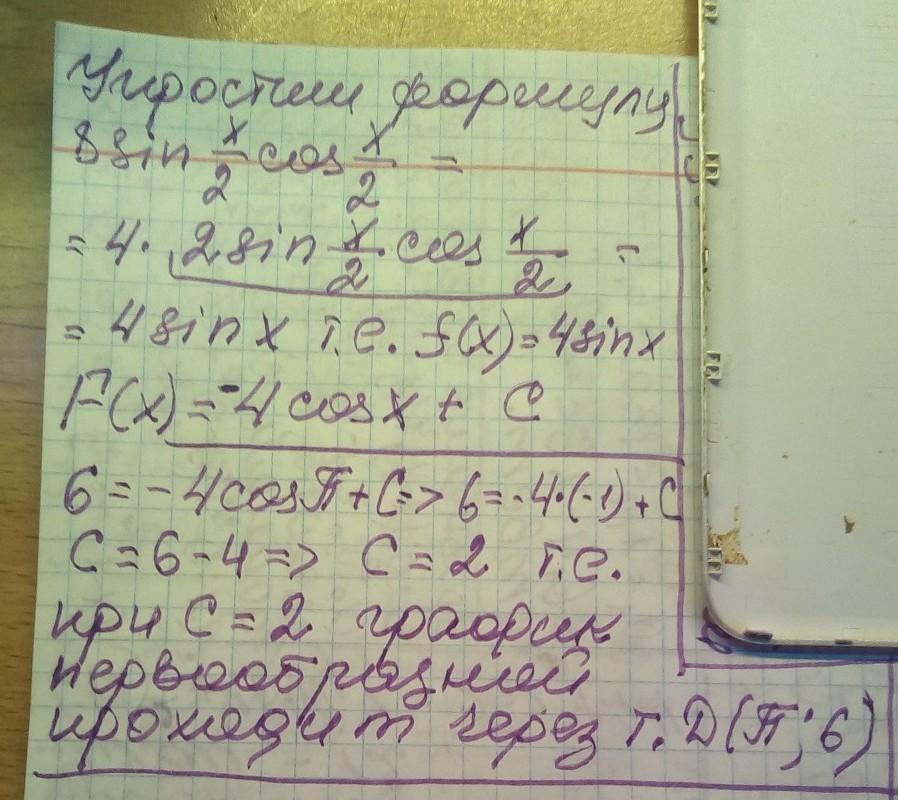 Упростим формулу
8sin x/2 cos x/2 =
= 4· 2sin x/2 cos x/2 =
= 4sinx т.е. f(x)=4sinx
F(x)=-4cosx + C
6=-4cosπ+C=> 6=-4·(-1)+C
C=6-4=> C=2 т.е.
при C=2 график
первообразной
проходит через т. D(π;6)